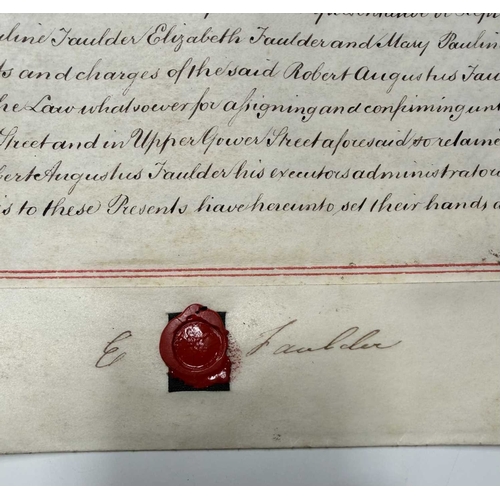 uline Faulder Elizabeth Faulder and Mary Pauline
ts and charges of the said Robert Augustus Faul
he Law whatsoever for assigning and confirming unt
Street and in Upper Gower Street aforesaid so retaine
bert Augustus Faulder his executors administrator
s to these Presents have hereunto set their hands a
E Faulder